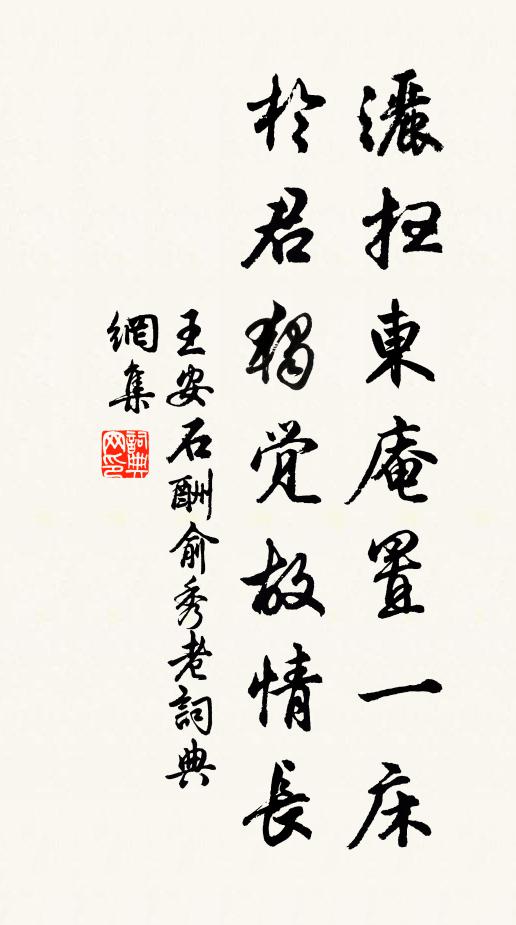 灑扫東庵置一床
於君獨覺故情長
王安石酬俞秀老詞典
網集
詞典
网印